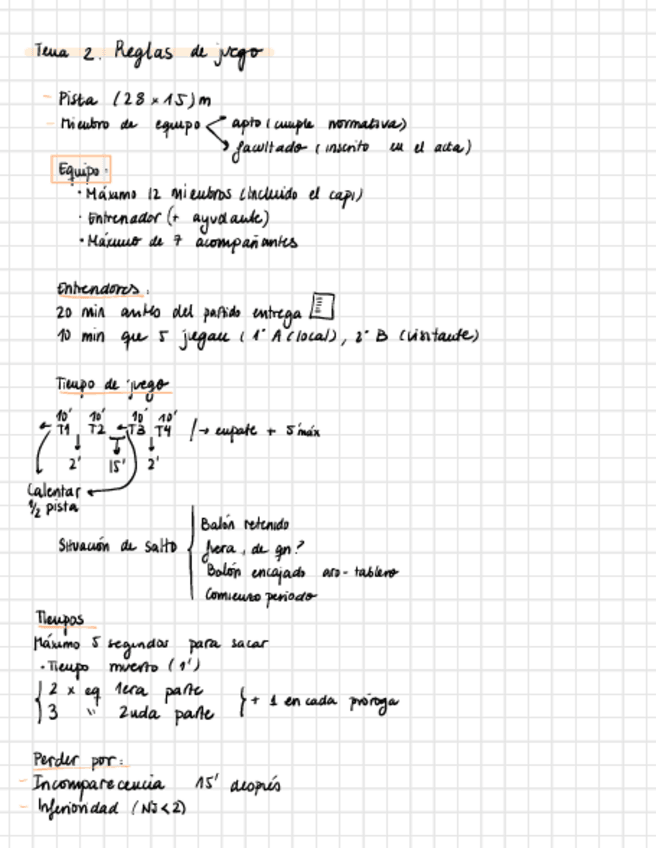 Tema 2. Reglas de juego
- Pista (28 x 15) m
- Miembro de equipo
apto (cumple normativa)
facultado (inscrito en el acta)
Equipo:
· Máximo 12 miembros (incluido el capi)
· Entrenador (+ ayudante)
· Máximo de 7 acompañantes
Entrendores:
20 min antes del partido entrega
10 min que 5 juegan (1º A (local), 2º B (visitante)
Tiempo de juego
10' 10' 10' 10'
T1 T2 T3 T4 /→ empate + 5' máx
2' 15' 2'
Calentar
1/2 pista
Situación de salto
Balón retenido
fuera, de qn?
Balón encajado aro-tablero
Comienzo periodo
Tiempos
Máximo 5 segundos para sacar
· Tiempo muerto (1')
2 x eq 1era parte
3 " 2nda parte
+ 1 en cada prórroga
Perder por:
- Incomparecencia 15' después
- Inferioridad (NJ<2)